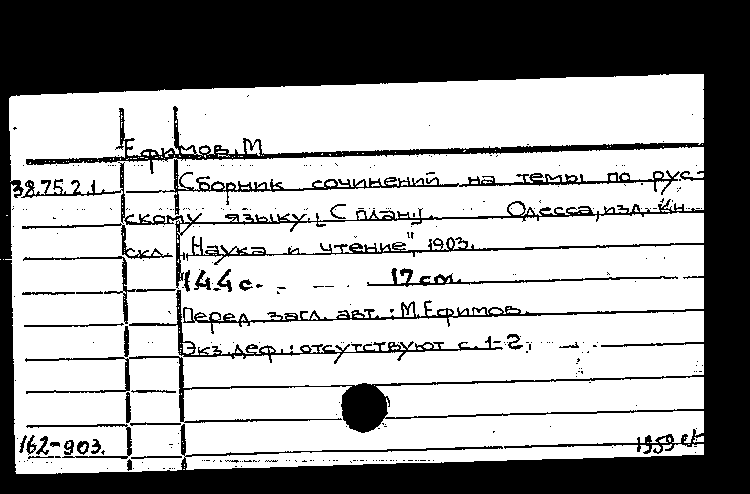 Ефимов, М
38.75.2.1. Сборник сочинений на темы по рус-
скому языку. [С план.]. Одесса, изд. Кн.
скл. „Наука и чтение", 1903.
144 с. 17 cm.
Перед загл. авт.: М. Ефимов.
Экз. деф.: отсутствуют с. 1-2.
162-903. 1959